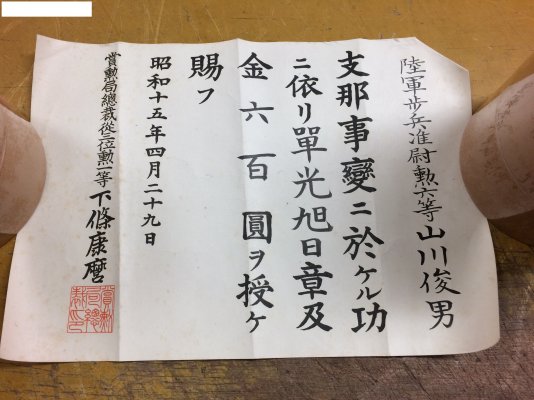 陸軍歩兵准尉勲六等山川俊男
支那事變ニ於ケル功
ニ依リ單光旭日章及
金六百圓ヲ授ケ
賜フ
昭和十五年四月二十九日
賞勲局總裁從三位勲一等下條康麿
賞勲局總裁之印